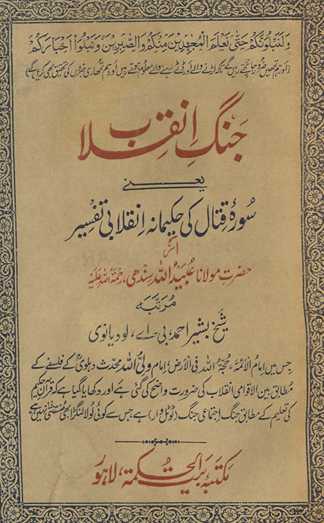 وَلَنَبْلُوَنَّكُمْ حَتّٰى نَعْلَمَ الْمُجٰهِدِيْنَ مِنْكُمْ وَالصّٰبِرِيْنَ وَنَبْلُوَا اَخْبَارَكُمْ
جنگِ انقلاب
یعنی
سورۂ قتال کی حکیمانہ انقلابی تفسیر
از
حضرت مولانا عبید اللہ سندھی رحمۃ اللہ علیہ
مرتبہ
شیخ بشیر احمد، بی-اے، لودیانوی
جس میں امام الائمہ، حجۃ اللہ فی الارض، امام ولی اللہ محدث دہلوی کے فلسفے کے
مطابق بین الاقوامی انقلاب کی ضرورت واضح کی گئی ہے اور دکھایا گیا ہے کہ قرآن حکیم
کی تعلیم کے مطابق جنگ اجتماعی جنگ (ٹوٹل وار) ہے جس سے کوئی لولا لنگڑا بھی مستثنیٰ نہیں ہے
مکتبہ بیت الحکمۃ، لاہور